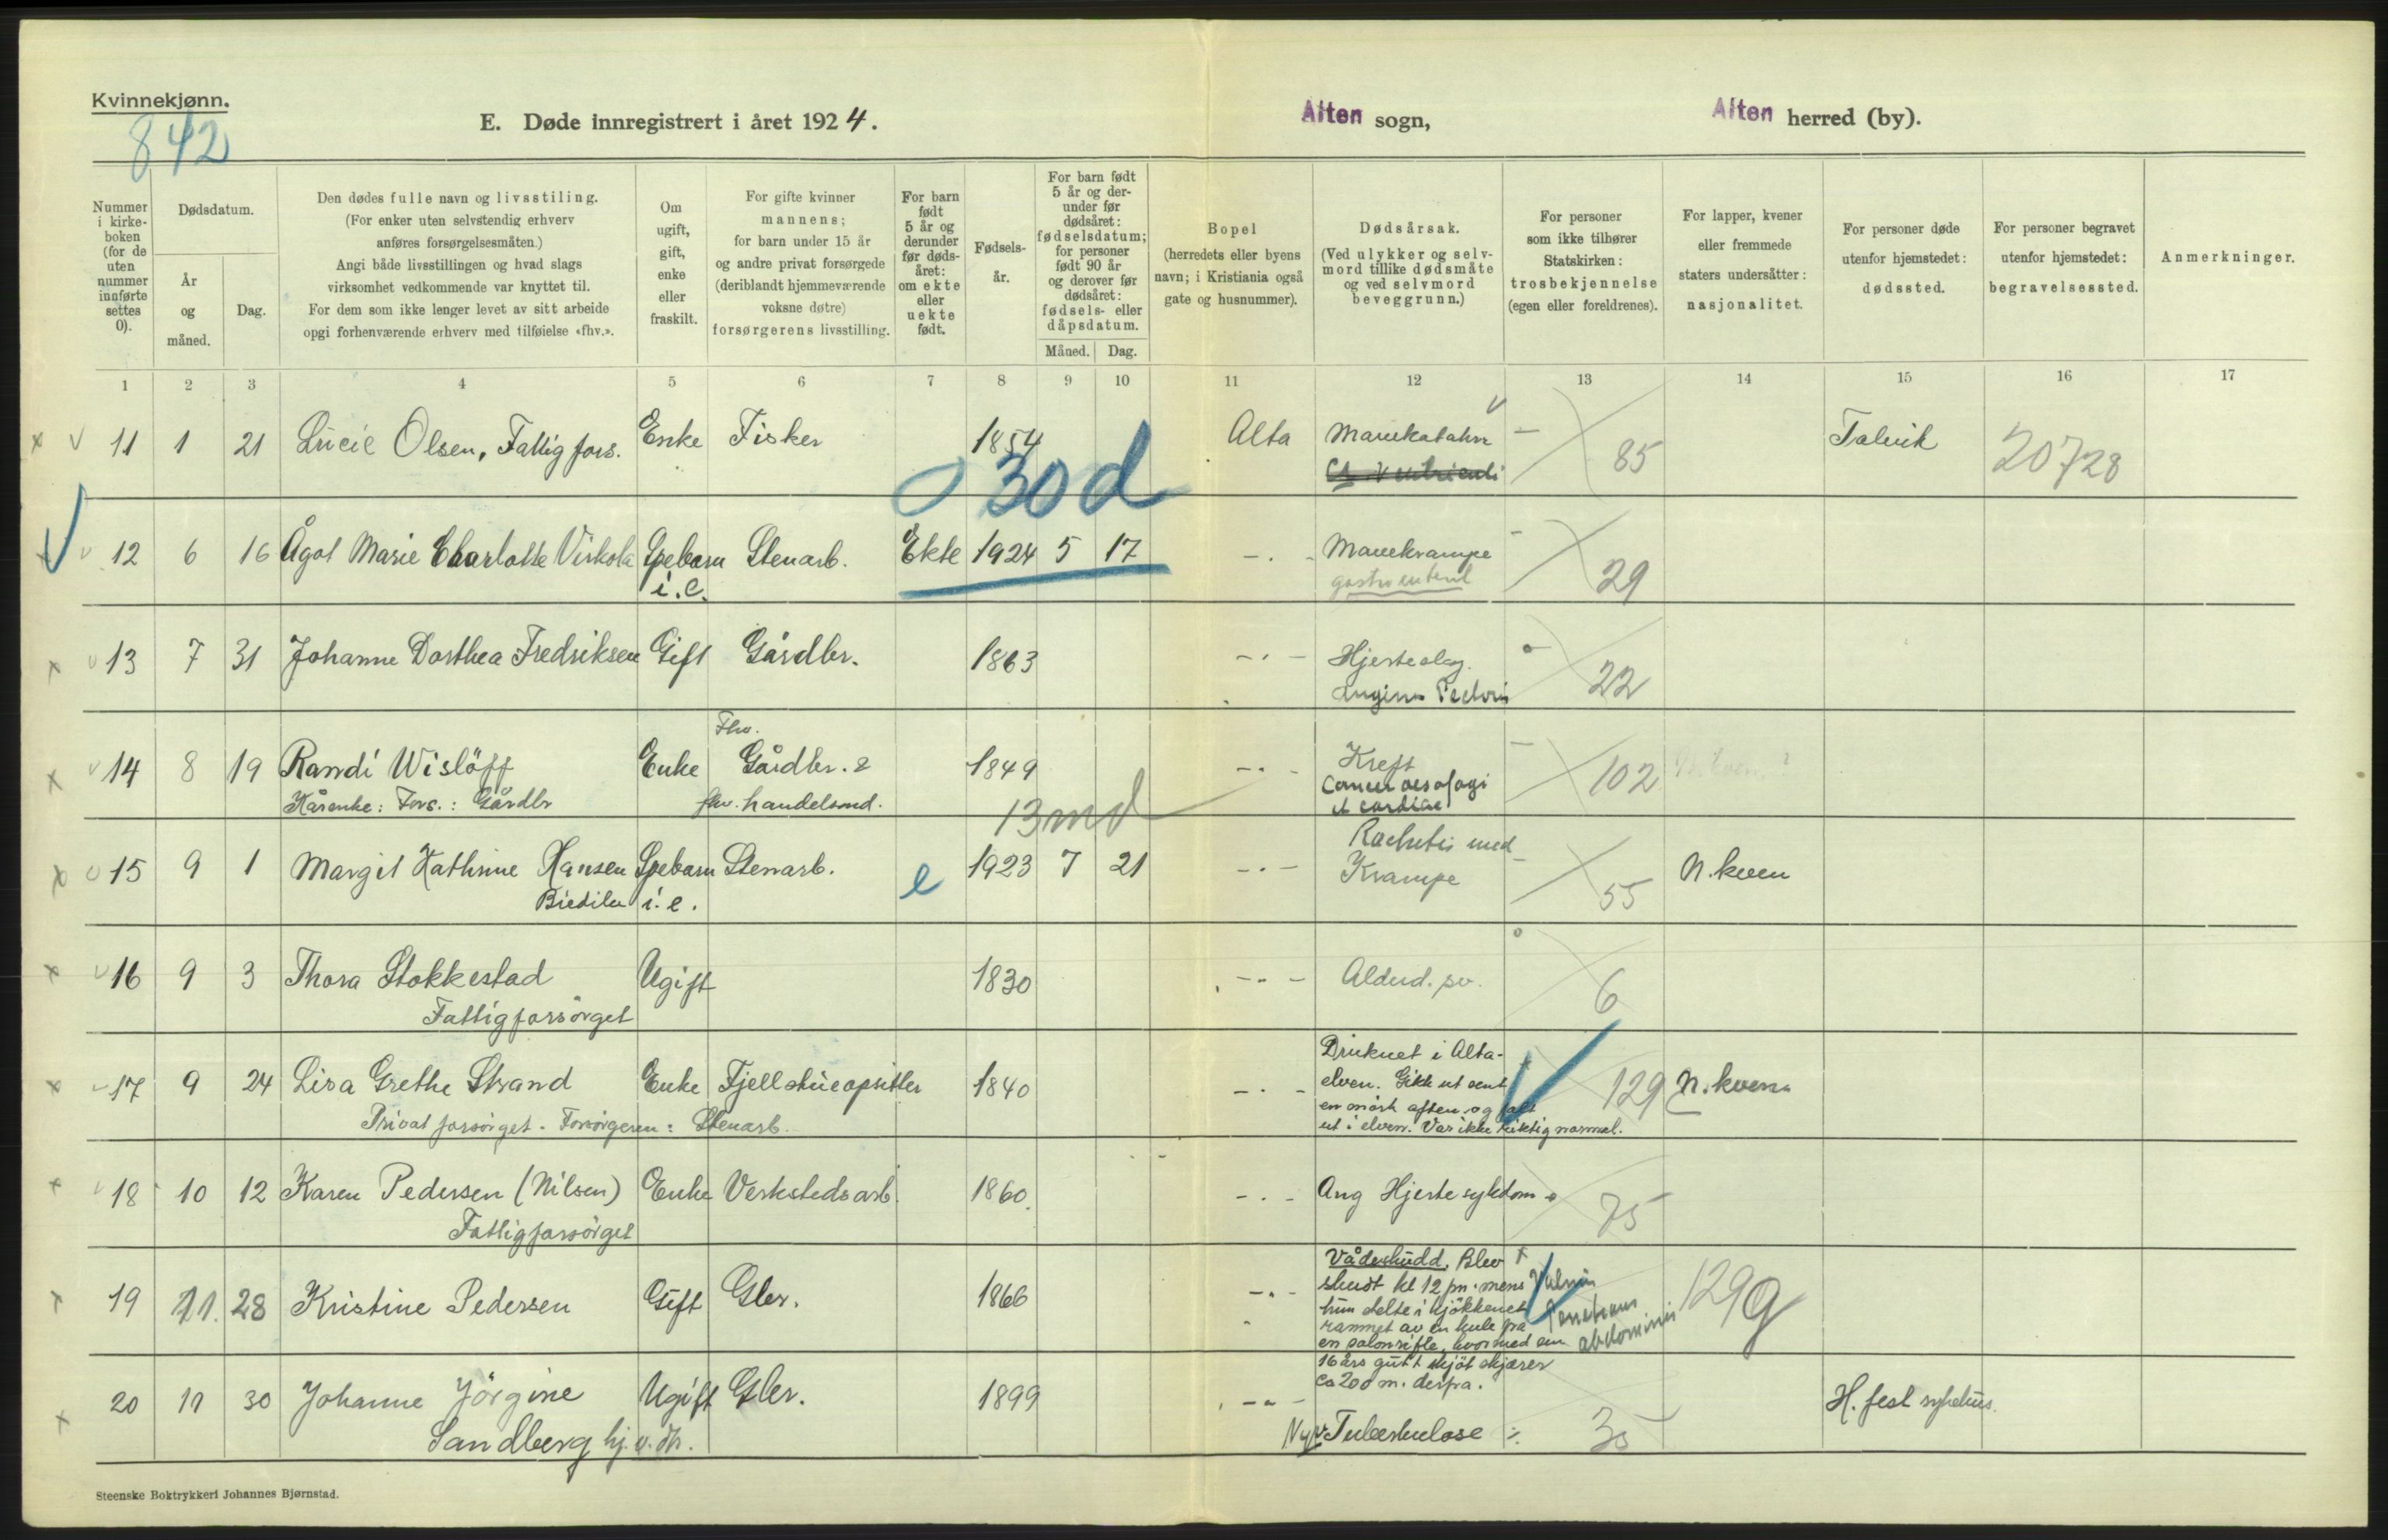 Kvinnekjønn.
842
E. Døde innregistrert i året 1924.
Alten sogn,
Alten herred (by).
Nummer i kirke-boken (for de uten nummer innførte settes 0).
Dødsdatum.
År og måned.
Dag.
Den dødes fulle navn og livsstiling.
(For enker uten selvstendig erhverv
anføres forsørgelsesmåten.)
Angi både livsstillingen og hvad slags
virksomhet vedkommende var knyttet til.
For dem som ikke lenger levet av sitt arbeide
opgi forhenværende erhverv med tilføielse «fhv.».
Om ugift, gift, enke eller fraskilt.
For gifte kvinner
mannens;
for barn under 15 år
og andre privat forsørgede
(deriblandt hjemmeværende
voksne døtre)
forsørgerens livsstilling.
For barn født 5 år og derunder før døds-året: om ekte eller uekte født.
Fødsels-år.
For barn født 5 år og der-under før dødsåret: fødselsdatum; for personer født 90 år og derover før dødsåret: fødsels- eller dåpsdatum.
Måned.
Dag.
Bopel
(herredets eller byens
navn; i Kristiania også
gate og husnummer).
Dødsårsak.
(Ved ulykker og selv-
mord tillike dødsmåte
og ved selvmord
beveggrunn.)
For personer
som ikke tilhører
Statskirken:
trosbekjennelse
(egen eller foreldrenes).
For lapper, kvener
eller fremmede
staters undersåtter:
nasjonalitet.
For personer døde
utenfor hjemstedet:
dødssted.
For personer begravet
utenfor hjemstedet:
begravelsessted.
Anmerkninger.
1 2 3 4 5 6 7 8 9 10 11 12 13 14 15 16 17
11 1 21 Lucie Olsen, Fattigfors. Enke Fisker 1854 Alta Mavekatahr — 85 Talvik 20728
30 d
12 6 16 Ågot Marie Charlotte Virkola Spebarn Stenarb. Ekte 1924 5 17 — . — Mavekrampe — 29
i.e. gastroenterit
13 7 31 Johanne Dorthea Fredriksen Gift Gårdbr. 1863 — . — Hjerteslag. 22
Angina Pectoris
Fhv.
14 8 19 Randi Wislöff Enke Gårdbr. & 1849 — . — Kreft — 102
Kårenke: Fors.: Gårdbr fhv. handelsmd. Cancer oesofagi
et cardiae
13 md
15 9 1 Margit Kathrine Hansen Spebarn Stenarb. e 1923 7 21 — . — Rachitis med Krampe — 55 N. kven
i.e.
16 9 3 Thora Stokkestad Ugift 1830 — . — Alderd. sv. 6
Fattigforsörget
17 9 24 Lisa Grethe Strand Enke Fjellstueopsitter 1840 — . — Druknet i Alta-
elven. Gikk ut sent 129 N. kven
en mörk aften og falt
Privat forsörget - Forsörgeren: Stenarb. ut i elven. Var ikke riktig normal.
18 10 12 Karen Pedersen (Nilsen) Enke Verkstedsarb. 1860. — . — Ang Hjertesykdom 75
Fattigforsörget
19 11. 28 Kristine Pedersen Gift Gbr. 1866 — . — Vådeskudd. Blev
skudt kl 12 pn. mens
hun stelte i kjökkenet
rammet av en kule fra
en salonrifle, hvormed en
16 års gutt skjöt skjærer
ca 200 m. derfra.
Vulnus
Penetrans
abdominis
129
20 11 30 Johanne Jörgine Ugift Gbr. 1899 — . — Tuberkulose 35 H.fest sykehus.
Sandberg hj.v. dtr.
Steenske Boktrykkeri Johannes Bjørnstad.